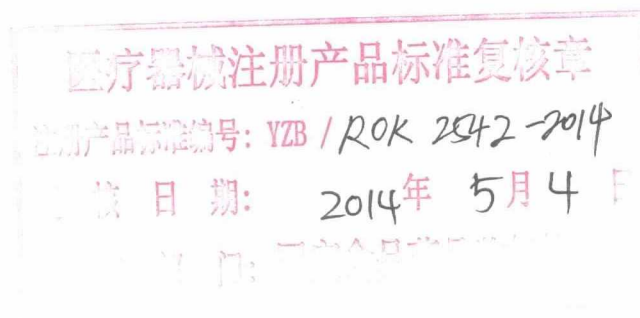 医疗器械注册产品标准复核章
注册产品标准编号: YZB / ROK 2542-2014
核日期: 2014年 5月 4日
门: